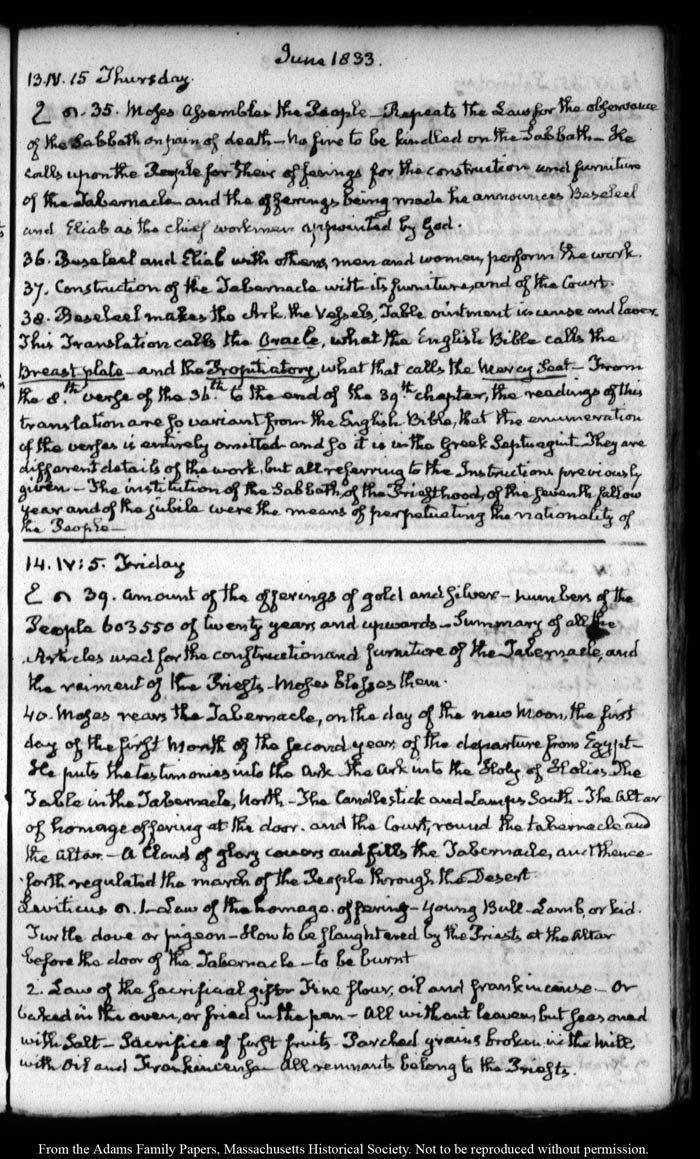 June 1833.
13. IV. 15 Thursday.
35. Moses assembles the People – Repeats the Law for the observance
of the Sabbath on pain of death – No fire to be kindled on the Sabbath – He
calls upon the People for their offerings for the construction and furniture
of the Tabernacle – and the offerings being made he announces Beseleel
and Eliab as the chief workmen appointed by God.
36. Beseleel and Eliab with others, men and women, perform the work.
37. Construction of the Tabernacle with its furniture, and of the Court.
38. Beseleel makes the Ark, the Vessels, Table ointment incense and Laver
This Translation calls the Oracle, what the English Bible calls the
Breast plate – and the Propitiatory, what that calls the Mercy Seat – From
the 8.th verse of the 36.th to the end of the 39.th chapter, the readings of this
translation are so variant from the English Bible, that the enumeration
of the verses is entirely omitted and so it is in the Greek Septuagint. They are
different details of the work, but all referring to the Instructions previously
given – The institution of the Sabbath, of the Priesthood, of the seventh fallow
year and of the jubile were the means of perpetuating the nationality of
the People –
14. IV: 5. Friday
39. Amount of the offerings of gold and silver – numbers of the
People 603550 of twenty years and upwards – Summary of all the
Articles used for the construction and furniture of the Tabernacle, and
the raiment of the Priests – Moses blesses them.
40. Moses rears the Tabernacle, on the day of the new Moon, the first
day of the first Month of the second year, of the departure from Egypt –
He puts the testimonies into the Ark the Ark into the Holy of Holies The
Table in the Tabernacle, North – The Candlestick and Lamps South – The Altar
of homage offering at the door. and the Court, round the tabernacle and
the Altar – A Cloud of glory covers and fills the Tabernacle, and thence-
forth regulated the march of the People through the Desert
Leviticus 1 – Law of the homage. offering – Young Bull – Lamb, or kid.
Turtle dove or pigeon – How to be slaughtered by the Priests at the Altar
before the door of the Tabernacle – to be burnt
2. Law of the sacrificial gift Fine flour, oil and frankincense – or
baked in the oven, or fried in the pan – All without leaven, but seasoned
with Salt – Sacrifice of first fruits – Parched grains broken in the Mill,
with Oil and Frankincense All remnants belong to the Priests.
From the Adams Family Papers, Massachusetts Historical Society. Not to be reproduced without permission.